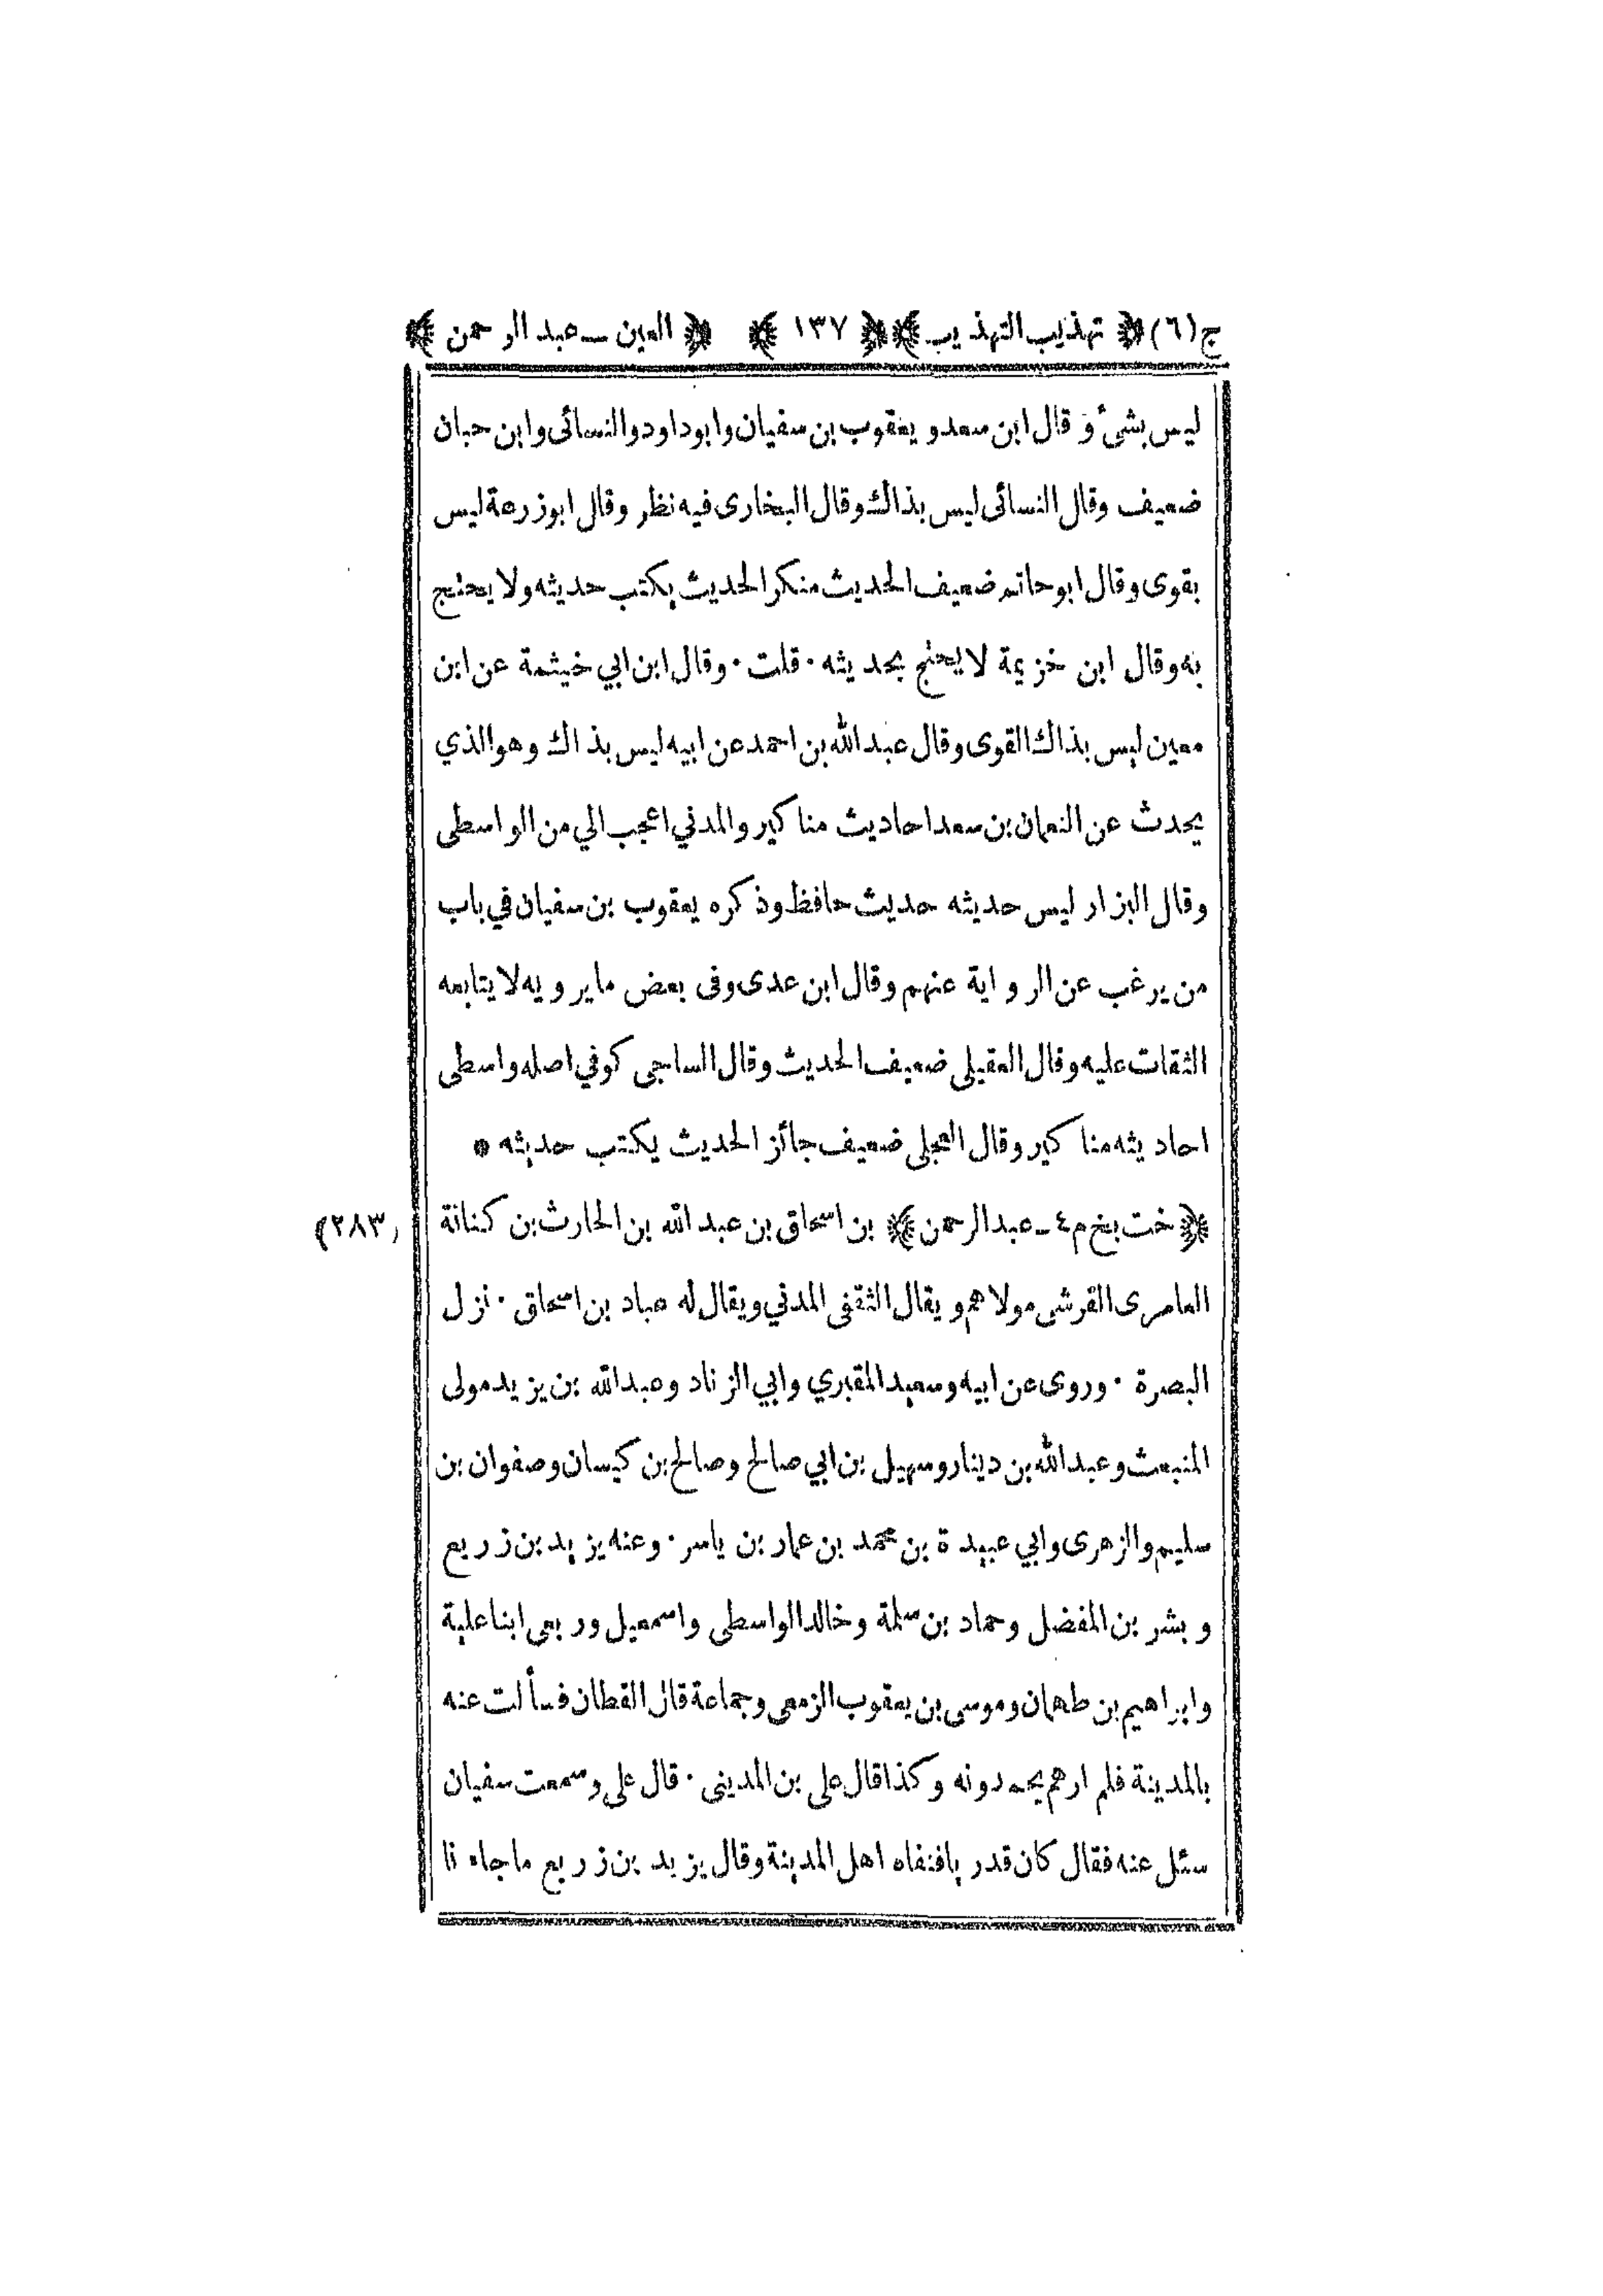 ج(٦) ﴿ تهذيب التهذيب ﴾ ﴿ ١٣٧ ﴾ ﴿ العين ــ عبد الرحمن ﴾
ليس بشئ و قال ابن سعد و يعقوب بن سفيان وابو داود والنسائى وابن حبان
ضعيف وقال النسائى ليس بذاك وقال البخارى فيه نظر وقال ابو زرعة ليس
بقوى وقال ابو حاتم ضعيف الحديث منكر الحديث يكتب حديثه ولا يحتج
به وقال ابن خزيمة لا يحتج بحديثه · قلت · وقال ابن ابي خيثمة عن ابن
معين ليس بذاك القوى وقال عبد الله بن احمد عن ابيه ليس بذاك وهو الذي
يحدث عن النعمان بن سعد احاديث مناكير والمدني اعجب الي من الواسطى
وقال البزار ليس حديثه حديث حافظ وذكره يعقوب بن سفيان في باب
من يرغب عن الرواية عنهم وقال ابن عدى وفى بعض ما يرويه لا يتابعه
الثقات عليه وقال العقيلى ضعيف الحديث وقال الساجى كوفي اصله واسطى
احاديثه مناكير وقال العجلى ضعيف جائز الحديث يكتب حديثه *
﴿ خت بخ م ٤ ـ عبد الرحمن ﴾ بن اسحاق بن عبد الله بن الحارث بن كنانة
(٢٨٣)
العامرى القرشى مولاهم و يقال الثقفى المدني ويقال له عباد بن اسحاق · نزل
البصرة · وروى عن ابيه وسعيد المقبري وابي الزناد وعبد الله بن يزيد مولى
المنبعث وعبد الله بن دينار وسهيل بن ابي صالح وصالح بن كيسان وصفوان بن
سليم والزهرى وابي عبيدة بن محمد بن عمار بن ياسر · وعنه يزيد بن زريع
و بشر بن المفضل وحماد بن سلمة وخالد الواسطى واسمعيل وربعى ابنا علية
وابراهيم بن طهمان وموسى بن يعقوب الزمعى وجماعة قال القطان فسألت عنه
بالمدينة فلم ارهم يحمدونه وكذا قال على بن المدينى · قال على وسمعت سفيان
سئل عنه فقال كان قدريا فنفاه اهل المدينة وقال يزيد بن زريع ما جاءنا